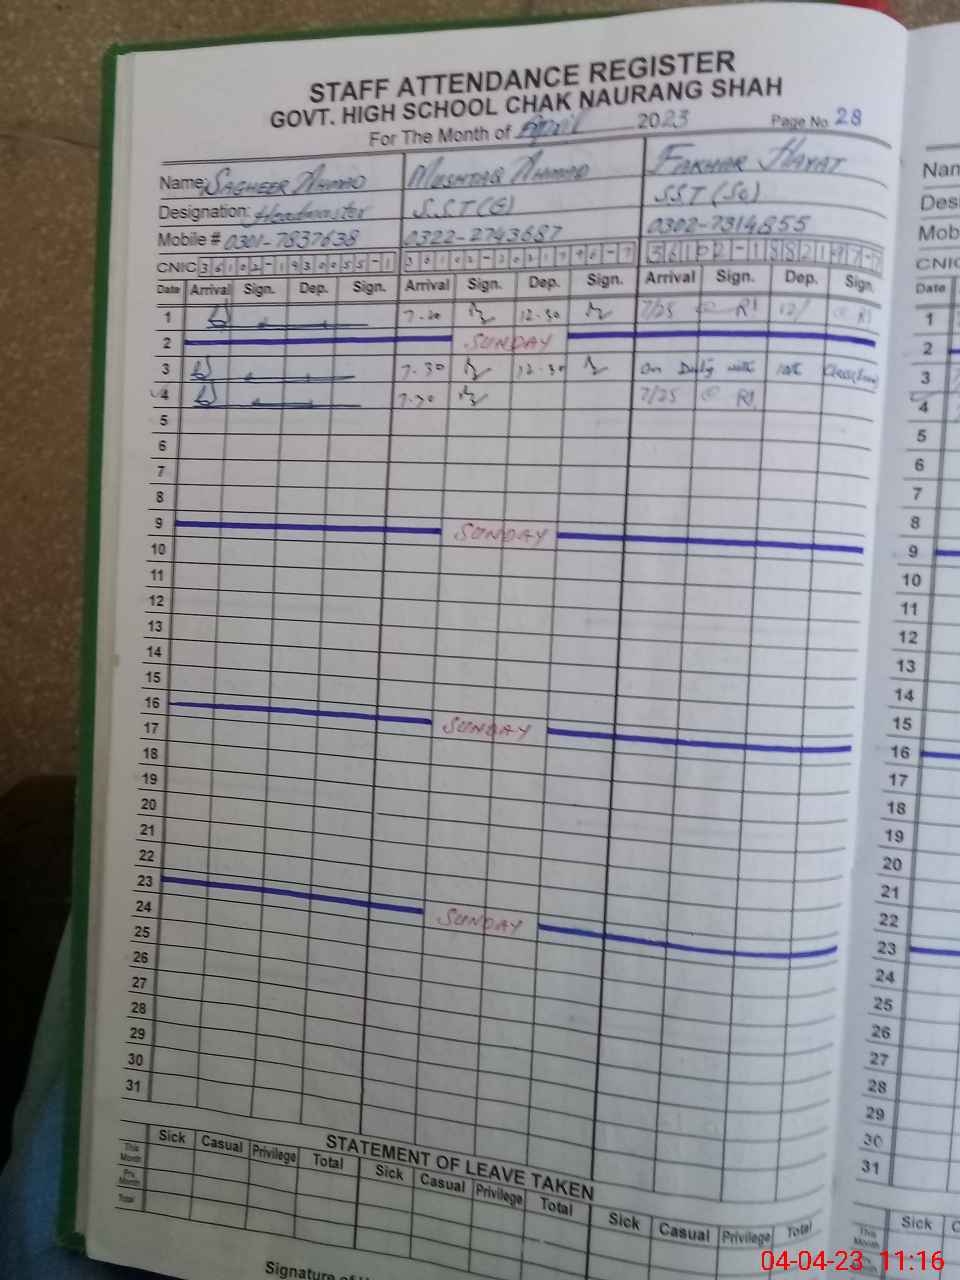 STAFF ATTENDANCE REGISTER
GOVT. HIGH SCHOOL CHAK NAURANG SHAH
For The Month of April 2023 Page No. 28
Name: SAGHEER AHMAD MUSHTAQ AHMAD FAKHAR HAYAT
Designation: Headmaster S.S.T(G) SST (Sc)
Mobile # 0301-7837638 0322-2743687 0302-7314855
CNIC
Date Arrival Sign. Dep. Sign. Arrival Sign. Dep. Sign. Arrival Sign. Dep. Sign.
1 12-30 7/25
2 SUNDAY
3 7-30 12-30 On Duty with 10th
4 7-30 7/25
5
6
7
8
9 SUNDAY
10
11
12
13
14
15
16 SUNDAY
17
18
19
20
21
22
23 SUNDAY
24
25
26
27
28
29
30
31
STATEMENT OF LEAVE TAKEN
Sick Casual Privilege Total Sick Casual Privilege Total Sick Casual Privilege Total
This Month
Prv. Month
Total
Signature of
Nam
Desi
Mob
CNIC
Date
1
2
3
4
5
6
7
8
9
10
11
12
13
14
15
16
17
18
19
20
21
22
23
24
25
26
27
28
29
30
31
Sick
This Month
04-04-23 11:16